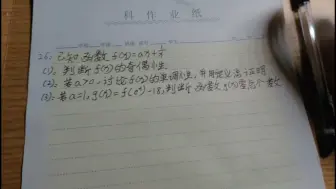 科作业纸
25. 已知函数 f(x)=ax+1/x
(1). 判断 f(x)的奇偶性
(2). 若 a>0, 讨论 f(x)的单调性, 并用定义法证明
(3). 若 a=1, g(x)=f(e^x)-18, 判断函数 g(x)零点个数